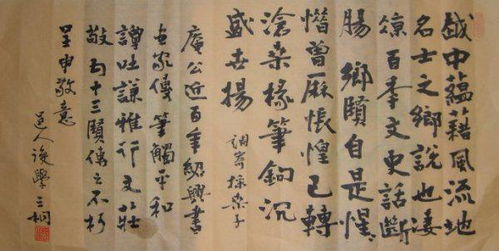 越中蘊藉風流地
名士之鄉說也淒
涼百年文史話斷
腸 鄉賢自是惺
惜曾歷悵惶已轉
滄桑椽筆鉤沉
盛世揚 調寄採桑子
庵公近百年紹興書
畫家傳筆觸平和
譚吐謙雅行文壯
十三賢傳之不朽
呈申敬意
邑人後學三桐